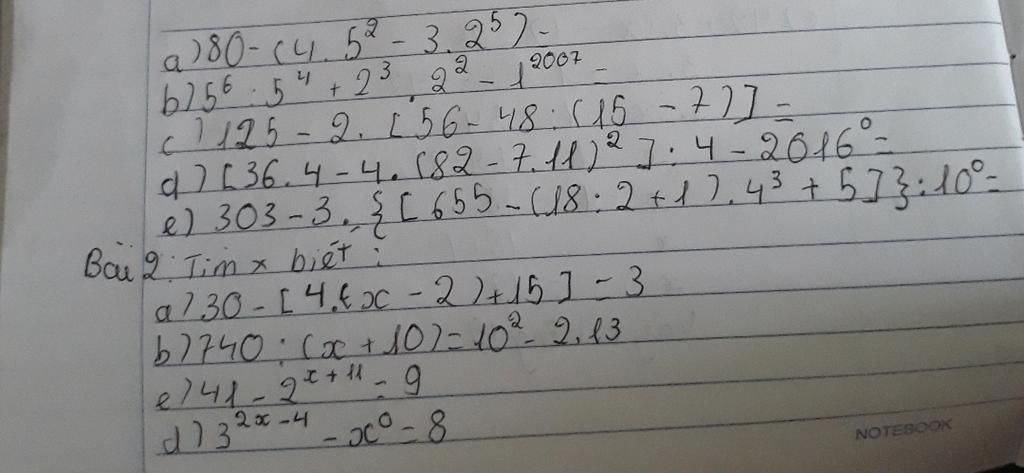 a) 80 - (4. 5² - 3. 2⁵) =
b) 5⁶ : 5⁴ + 2³ . 2² - 1²⁰⁰⁷ =
c) 125 - 2. [56 - 48 : (15 - 7)] =
d) [36. 4 - 4. (82 - 7. 11)²] : 4 - 2016⁰ =
e) 303 - 3. {[655 - (18 : 2 + 1). 4³ + 5]} : 10⁰ =
Bài 2: Tìm x biết :
a) 30 - [4.(x - 2) + 15] = 3
b) 740 : (x + 10) = 10² - 2. 13
e) 41 - 2ˣ⁺¹¹ = 9
d) 3²ˣ⁻⁴ - x⁰ = 8
NOTEBOOK